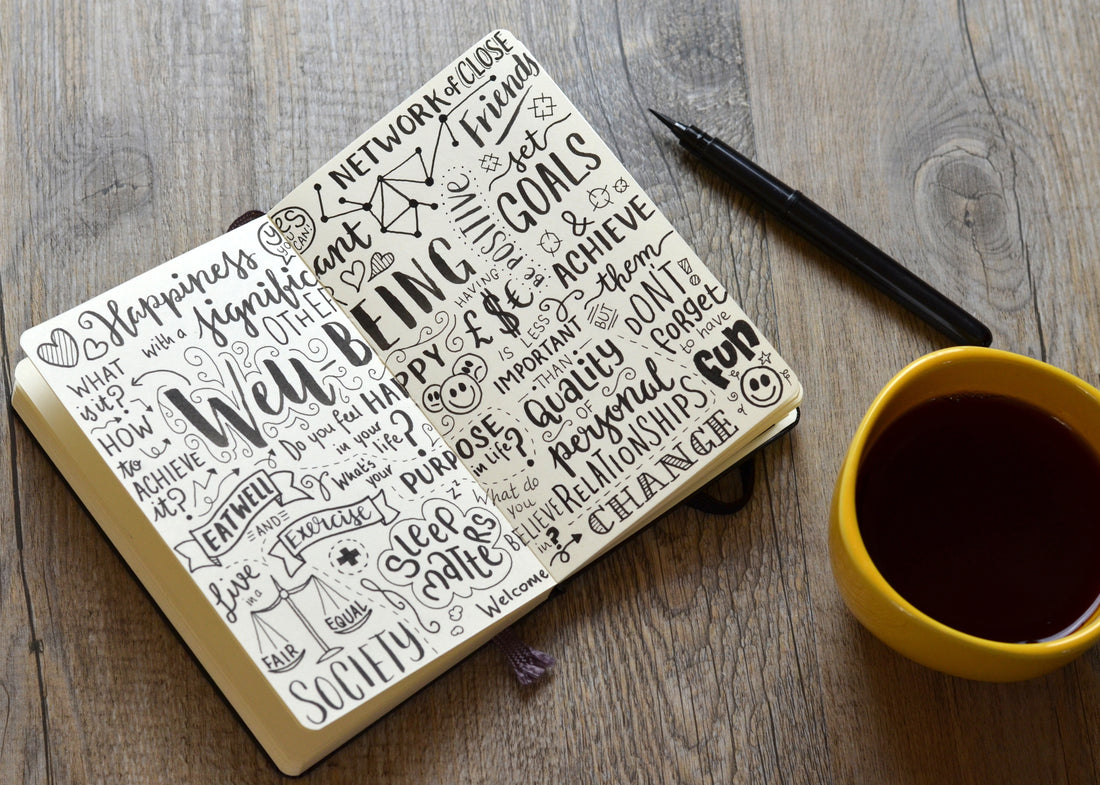 NETWORK of CLOSE
Friends
set
GOALS
&
ACHIEVE
them
yes
YOU
CAN!
Happiness
with a significant
OTHER
BE POSITIVE
Well-BEING
HAVING
£$€
IS LESS
IMPORTANT
BUT
DON'T
forget
to have
fun
WHAT
is it?
HOW
to
ACHIEVE
it?
Do you feel HAPPY
in your
life?
-THAN-
QUALITY
OF
personal
RELATIONSHIPS
What's
your PURPOSE
in life?
EAT WELL
AND
Exercise
z z
Sleep
matters
What do
you
BELIEVE
in?
Welcome
CHANGE
Live
in a
FAIR
EQUAL
SOCIETY